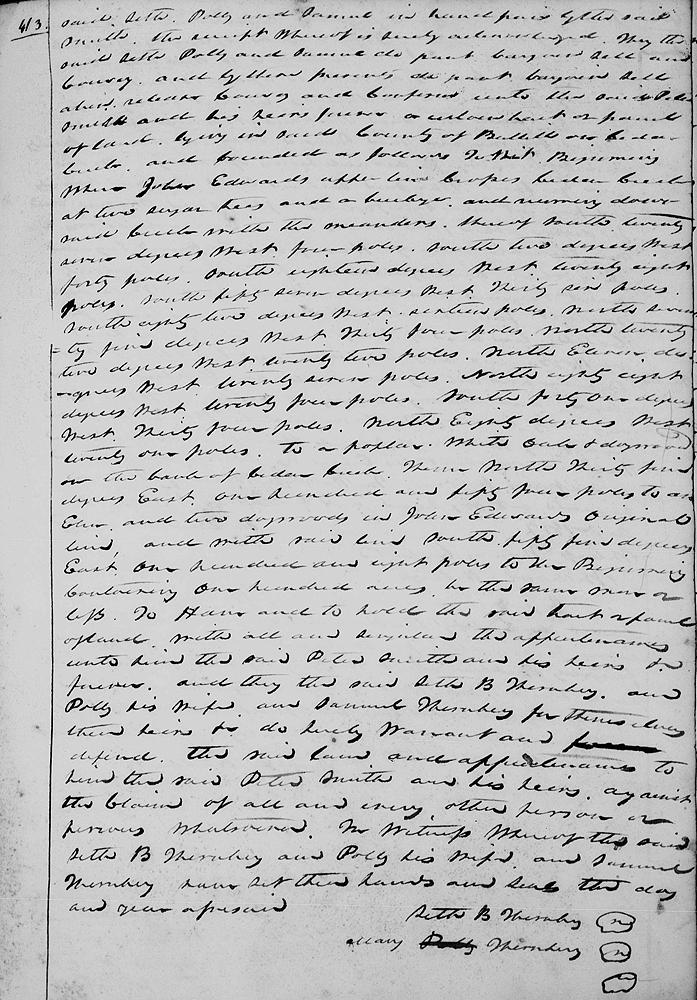 413.
said Seth. Polly and Samuel in hand paid by the said
Smith. the receipt Whereof is hereby acknowledged. they the
said Seth Polly and Samuel do grant bargain sell and
Convey. and by these presents do grant bargain sell
alien. release Convey and Confirm unto the said Peter
Smith and his heirs forever a certain tract or parcel
of land. lying in said County of Bullitt on Cedar
Creek. and bounded as follows To Wit. Beginning
Where John Edwards upper line Crosses Cedar Creek
at two sugar trees and a buckeye. and running down
said Creek with the meanders. thereof South twenty
seven degrees West four poles. South two degrees West
forty poles. South eighteen degrees West twenty eight
poles. South fifty seven degrees West Thirty six poles.
South eighty two degrees West. sixteen poles. North seven
=ty five degrees West. Thirty four poles. North twenty
two degrees West. twenty two poles. North Eleven de
=grees West. twenty seven poles. North eighty eight
degrees West twenty four poles. South forty One degrees
West. Thirty four poles. North Eighty degrees West.
twenty one poles. to a poplar. White Oak & dogwood
on the bank of Cedar Creek. Thence North Thirty five
degrees East. One hundred and fifty four poles to an
Elm. and two dogwoods in John Edwards Original
line, and with said line South fifty five degrees
East One hundred and eight poles to the Beginning
Containing One hundred acres be the same more or
less. To Have and to hold the said tract or parcel
of land with all and singular the appurtenances
unto him the said Peter Smith and his heirs &c
forever. and they the said Seth B Thornbey. and
Polly his Wife. and Samuel Thornbey for themselves
their heirs &c do hereby Warrant and
defend. the said land and appurtenances to
him the said Peter Smith and his heirs. against
the Claim of all and every other person or
persons Whatsoever. In Witness Whereof the said
Seth B Thornbey and Polly his Wife. and Samuel
Thornbey have set their hands and seals the day
and year aforesaid
Seth B Thornbey
Mary Polly Thornbery